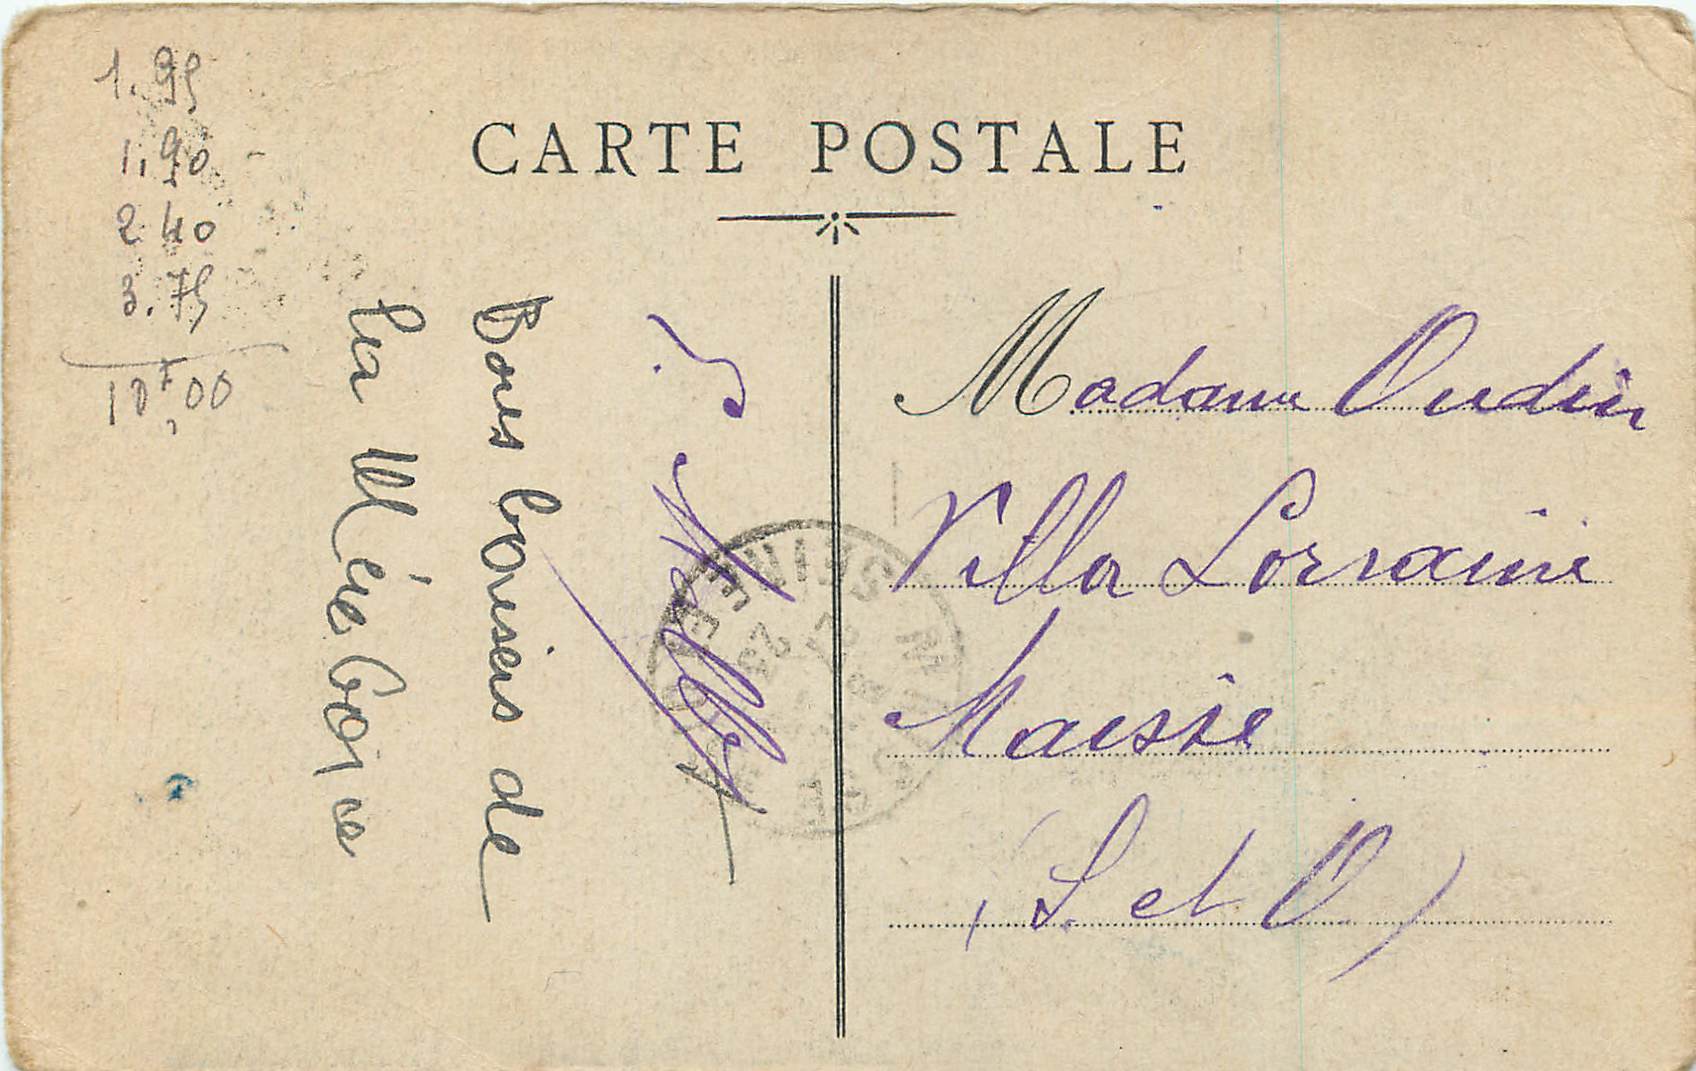 1.95
1.90
2 40
3.75
10F,00
CARTE POSTALE
Bons baisers de
la
Madame Oudin
Villa Lorraine
Maisse
(S. et O)
SEINE